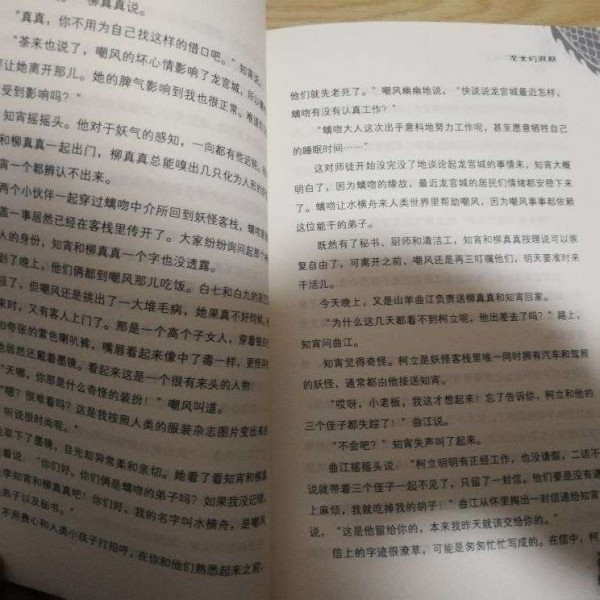 柳真真说。
"真真，你不用为自己找这样的借口吧。"知宵说。
"茶来也说了，嘲风的坏心情影响了龙宫城，所以
要让她离开那儿。她的脾气影响到我也很正常。难道
受到影响吗？"
知宵摇摇头。他对于妖气的感知，一向都有些迟
真真一起出门，柳真真总能嗅出几只化为人形的
个都辨认不出来。
两个小伙伴一起穿过螭吻中介所回到妖怪客栈，
盖一事居然已经在客栈里传开了。大家纷纷询问起那个
人的身份，知宵和柳真真一个字也没透露。
到了晚上，他们俩都到嘲风那儿吃饭。白七和白九的
但嘲风还是挑出了一大堆毛病，她果真不好伺候。
来时，又有客人上门了。那是一个高个子女人，穿着
夸张的紫色喇叭裤，嘴唇看起来像中了毒一样，更
居然还戴着墨镜。看起来这是一个很有来头的人物！
"天哪，你那是什么奇怪的装扮！"嘲风叫道。
"嗯？很难看吗？这是我按照人类的服装杂志图片变出来的
听说很时尚呢。"
取下了墨镜，目光却异常柔和亲切。她看了看知宵和
着说："你们好，你们俩是螭吻的弟子吗？如果我没记错，
李知宵和柳真真吧！你们好，我的名字叫水横舟，是嘲风
弟子以及秘书。"
不用费心和人类小孩子打招呼，在你和他们熟悉起来之前，
龙女的眼泪
他们就先老死了。"嘲风幽幽地说，"快说说龙宫城最近怎样，
螭吻有没有认真工作？"
"螭吻大人这次出乎意料地努力工作呢，甚至愿意牺牲自己
的睡眠时间……"
这对师徒开始没完没了地谈论起龙宫城的事情来，知宵大概
明白了，因为螭吻的缘故，最近龙宫城的居民们情绪都安稳下来
了。螭吻让水横舟来人类世界里帮助嘲风，因为嘲风事事都依赖
这位能干的弟子。
既然有了秘书、厨师和清洁工，知宵和柳真真按理说可以
恢复自由了，可离开之前，嘲风还是再三叮嘱他们，明天要准时来
干活儿。
今天晚上，又是山羊曲江负责送柳真真和知宵回家。
"为什么这几天都看不到柯立呢，他出差去了吗？"路上，
知宵问曲江。
知宵觉得奇怪。柯立是妖怪客栈里唯一同时拥有汽车和驾照
的妖怪，通常都由他接送知宵。
"哎呀，小老板，我这才想起来！忘了告诉你，柯立和他的
三个侄子都失踪了！"曲江说。
"不会吧？"知宵失声叫了起来。
曲江摇摇头说，"柯立明明有正经工作，也没请假，二话不
说就带着三个侄子一起不见了，只留了一封信。他们要是没有遇
上麻烦，我就吃掉我的胡子！"曲江从怀里掏出一封信递给知宵
说，"这是他留给你的，本来我昨天就该交给你的。"
信上的字迹很潦草，可能是匆匆忙忙写成的。在信中，柯